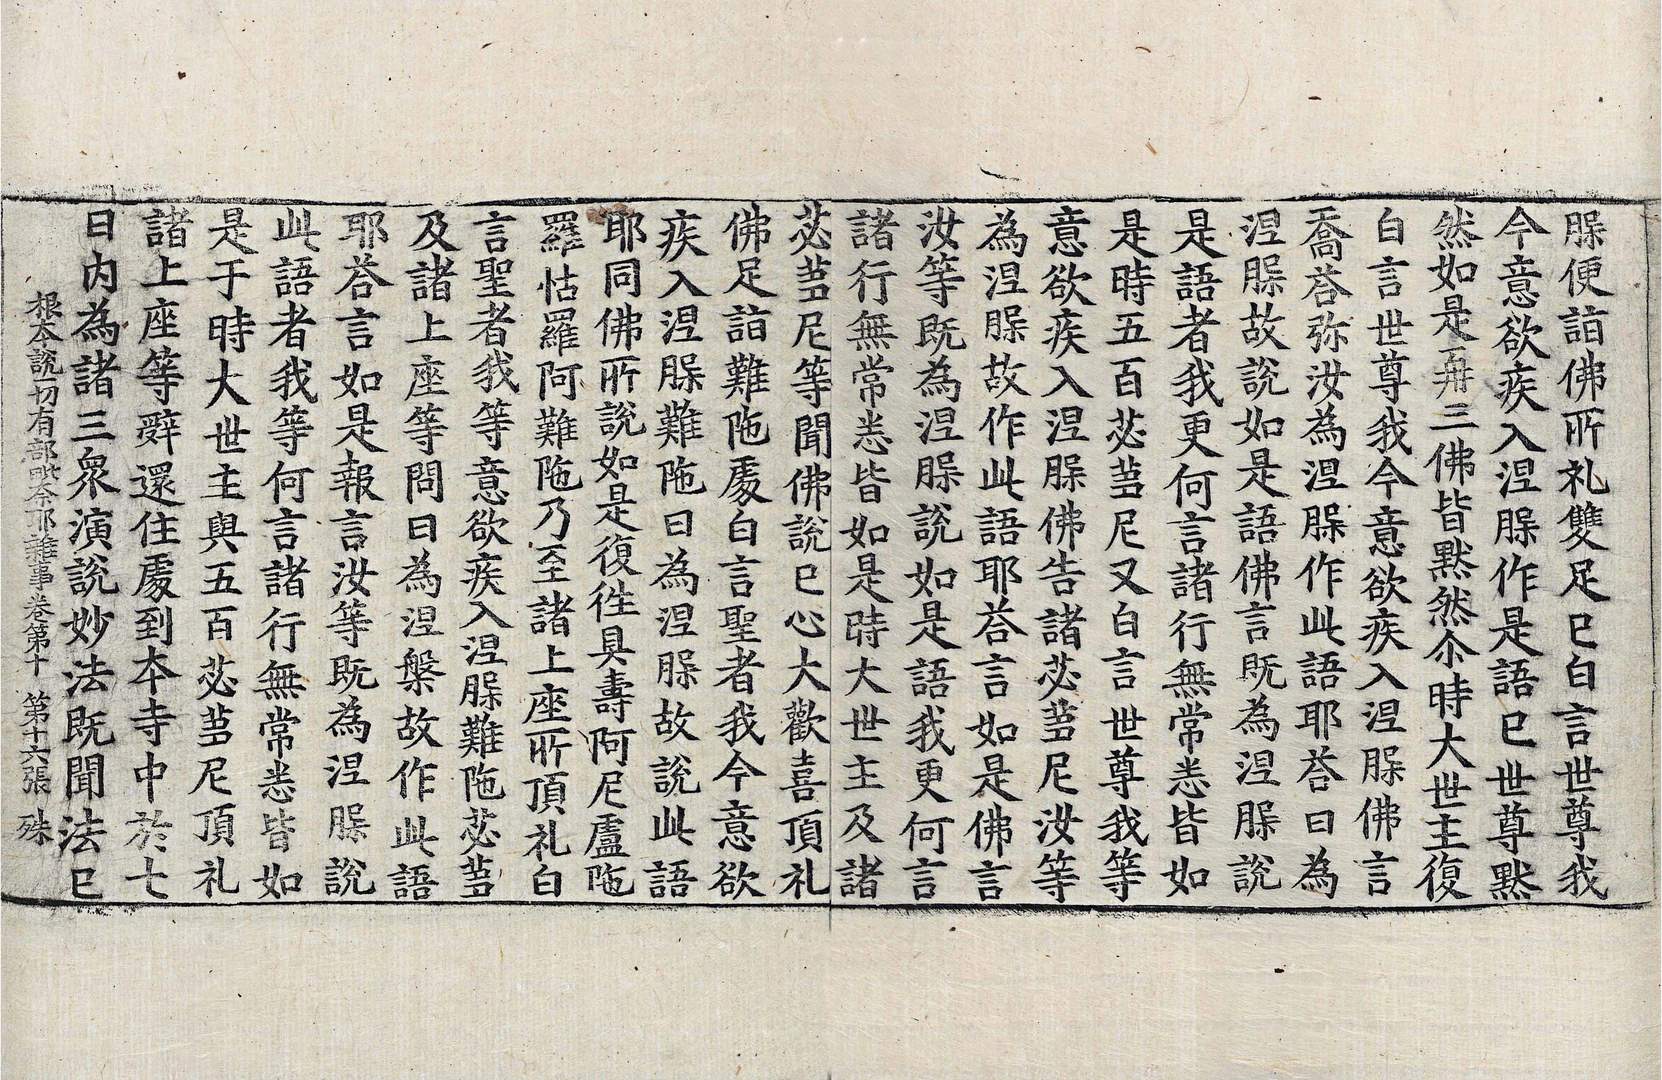 槃便詣佛所礼雙足已白言世尊我
今意欲疾入涅槃作是語已世尊默
然如是再三佛皆默然尒時大世主復
白言世尊我今意欲疾入涅槃佛言
喬荅弥汝為涅槃作此語耶荅曰為
涅槃故說如是語佛言既為涅槃說
是語者我更何言諸行無常悉皆如
是時五百苾芻尼又白言世尊我等
意欲疾入涅槃佛告諸苾芻尼汝等
為涅槃故作此語耶荅言如是佛言
汝等既為涅槃說如是語我更何言
諸行無常悉皆如是時大世主及諸
苾芻尼等聞佛說已心大歡喜頂礼
佛足詣難陁處白言聖者我今意欲
疾入涅槃難陁曰為涅槃故說此語
耶同佛所說如是復往具壽阿尼盧陁
羅怙羅阿難陁乃至諸上座所頂礼白
言聖者我等意欲疾入涅槃難陁苾芻
及諸上座等問曰為涅槃故作此語
耶荅言如是報言汝等既為涅槃說
此語者我等何言諸行無常悉皆如
是于時大世主與五百苾芻尼頂礼
諸上座等辤還住處到本寺中於七
日內為諸三衆演說妙法既聞法已
根本說一切有部毗奈耶雜事卷第十 第十六張 殊